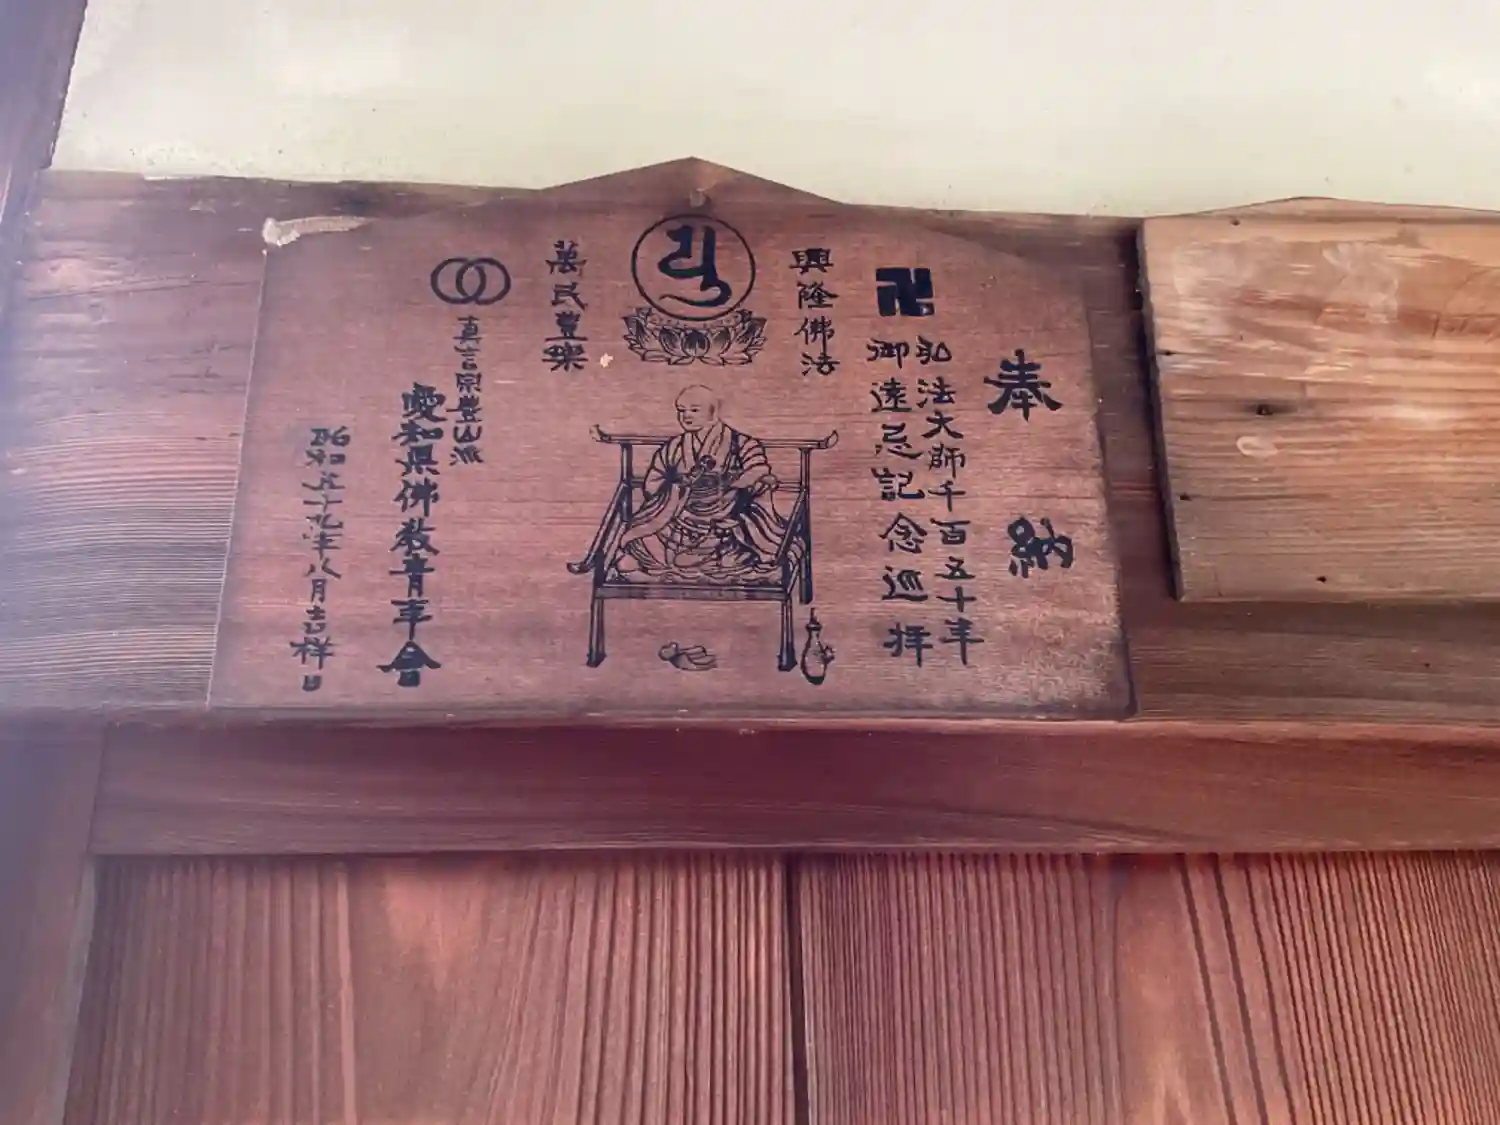 奉納
卍
弘法大師千百五十年
御遠忌記念巡拝
興隆佛法
萬民豊樂
真言宗豊山派
愛知県佛教青年会
昭和五十九年八月吉祥日